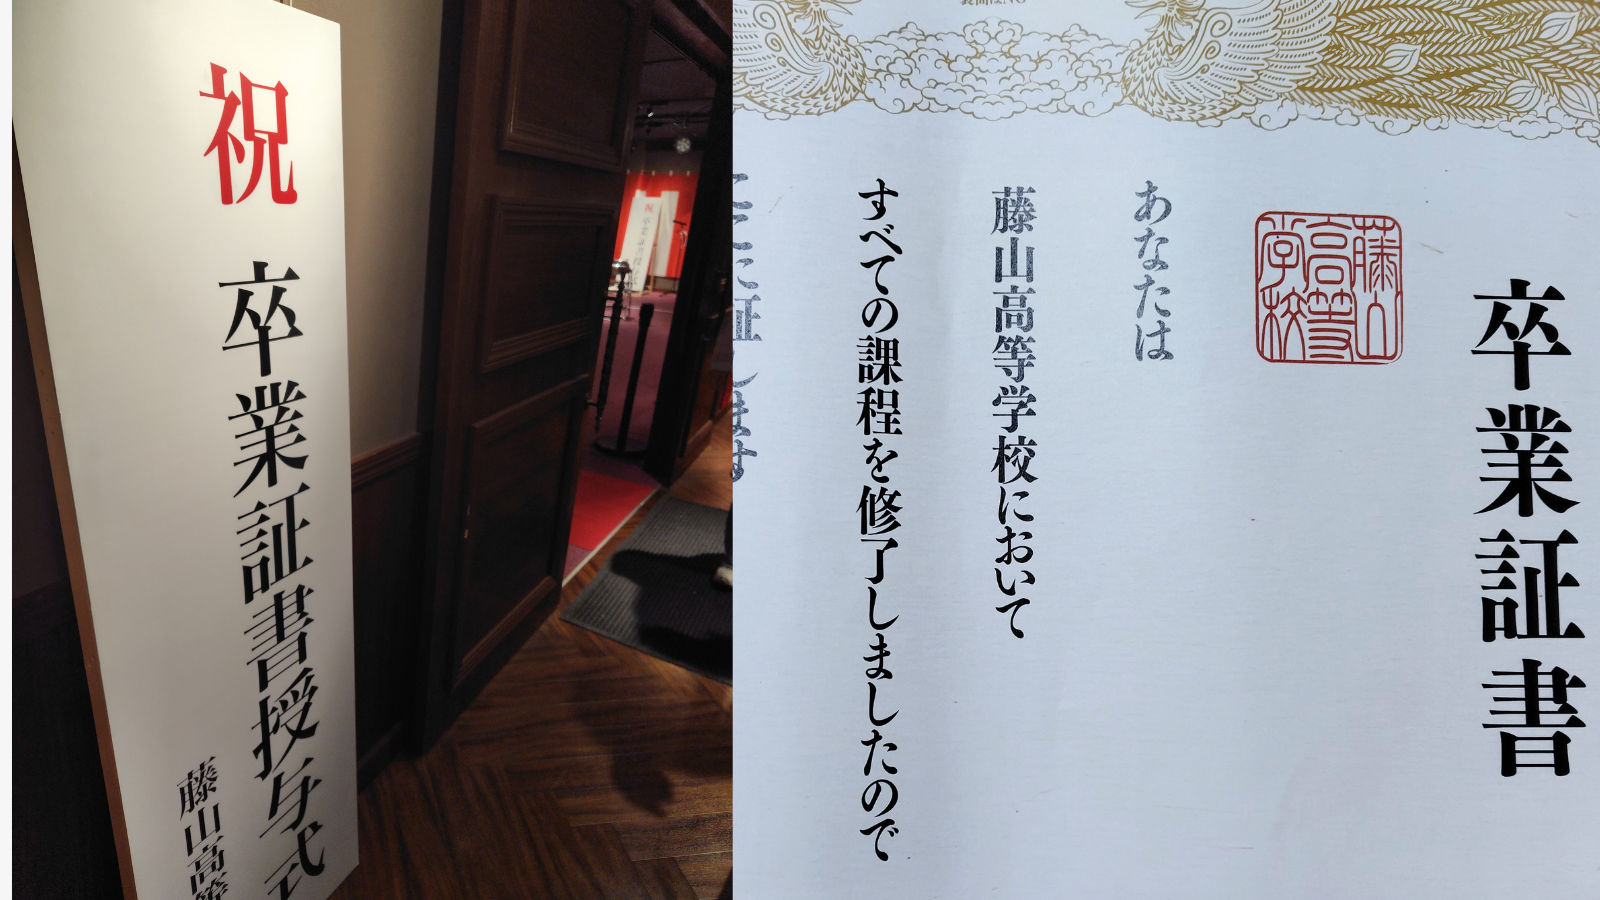 祝
卒業証書授与式
藤山高等
祝
卒業証書授与式
卒業証書
藤山高等学校
あなたは
藤山高等学校において
すべての課程を修了しましたので
ここに証します